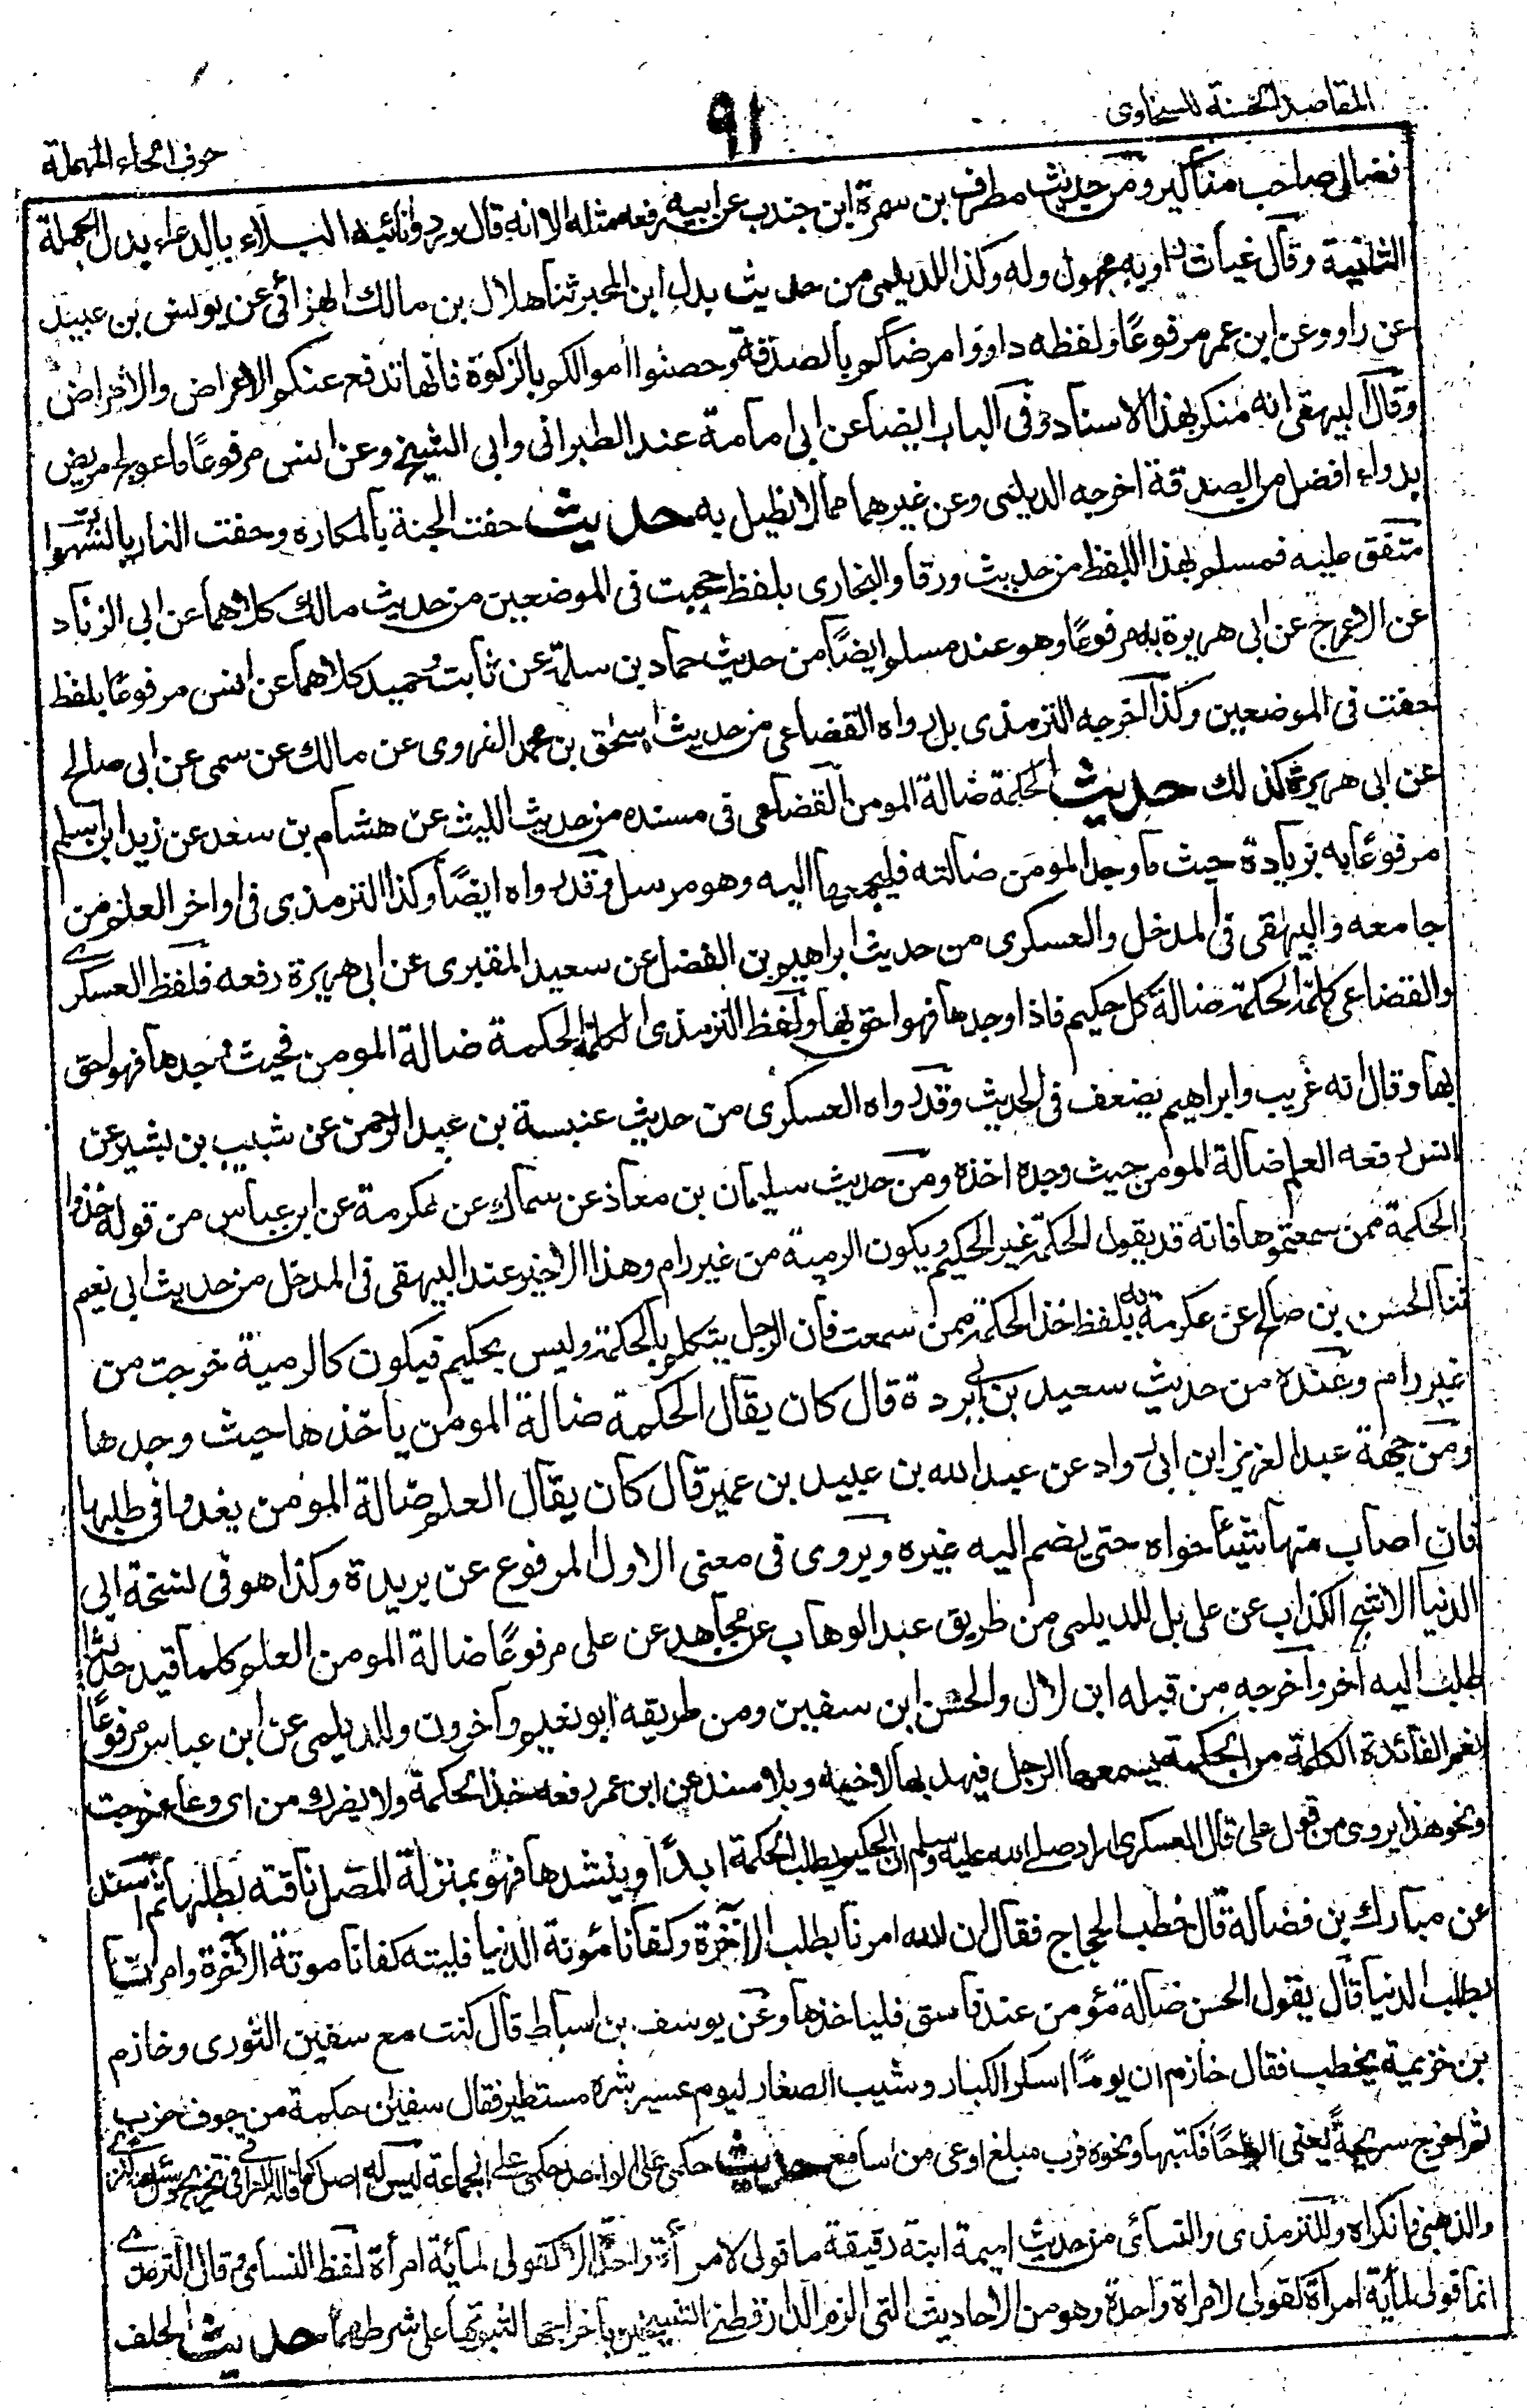 المقاصد الحسنة للسخاوى
٩١
حرف الحاء المهملة
فضالى صاحب مناكير ومن حديث مطرف بن سمرة ابن جندب عن ابيه رفعه مثله الا انه قال وردوا نائبة البلاء بالدعاء بدل الجملة
الثانية وقال غياث راويه مجهول وله وكذا للديلمى من حديث بدل ابن المحبر ثنا هلال بن مالك الهزائى عن يونس بن عبيد
عن راو وعن ابن عمر مرفوعًا ولفظه داووا مرضاكم بالصدقة وحصنوا اموالكم بالزكوة فانها تدفع عنكم الاعراض والامراض
وقال البيهقى انه منكر بهذا الاسناد وفى الباب ايضا عن ابى امامة عند الطبرانى وابى الشيخ وعن انس مرفوعًا ما عولج مريض
بدواء افضل من الصدقة اخرجه الديلمى وعن غيرهما مما لا نطيل به حديث حفت الجنة بالمكاره وحفت النار بالشهوات
متفق عليه فمسلم بهذا اللفظ من حديث ورقا والبخارى بلفظ حجبت فى الموضعين من حديث مالك كلاهما عن ابى الزناد
عن الاعرج عن ابى هريرة به مرفوعًا وهو عند مسلم ايضًا من حديث حماد بن سلمة عن ثابت وحميد كلاهما عن انس مرفوعًا بلفظ
حفت فى الموضعين وكذا اخرجه الترمذى بل رواه القضاعى من حديث اسحق بن محمد الفروى عن مالك عن سمى عن ابى صالح
عن ابى هريرة كذلك حديث الحكمة ضالة المومن القضاعى فى مسنده من حديث الليث عن هشام بن سعد عن زيد ابن اسلم
مرفوعًا به بزيادة حيث ما وجد المومن ضالته فليجمعها اليه وهو مرسل وقد رواه ايضًا وكذا الترمذى فى اواخر العلم من
جامعه والبيهقى فى المدخل والعسكرى من حديث ابراهيم بن الفضل عن سعيد المقبرى عن ابى هريرة رفعه فلفظ العسكرى
والقضاعى كلمة الحكمة ضالة كل حكيم فاذا وجدها فهو احق بها ولفظ الترمذى الكلمة الحكمة ضالة المومن فحيث وجدها فهو احق
بها وقال انه غريب وابراهيم يضعف فى الحديث وقد رواه العسكرى من حديث عنبسة بن عبد الرحمن عن شبيب بن بشير عن
انس رفعه العلم ضالة المومن حيث وجده اخذه ومن حديث سليمان بن معاذ عن سماك عن عكرمة عن ابن عباس من قوله خذوا
الحكمة ممن سمعتموها فانه قد يقول الحكمة غير الحكيم ويكون الرمية من غير رام وهذا الاخير عند البيهقى فى المدخل من حديث ابى نعيم
ثنا الحسن بن صالح عن عكرمة به بلفظ خذ الحكمة ممن سمعت فان الرجل يتكلم بالحكمة وليس بحكيم فيكون كالرمية خرجت من
غير رام وعنده من حديث سعيد بن ابى بردة قال كان يقال الحكمة ضالة المومن ياخذها حيث وجدها
ومن جهة عبد العزيز ابن ابى رواد عن عبد الله بن عبيد بن عمير قال كان يقال العلم ضالة المومن يغدوا فى طلبها
فان اصاب منها شيئا حواه حتى يضم اليه غيره ويروى فى معنى الاول المرفوع عن بريدة وكذا هو فى نسخة ابى
الدنيا الاشج الكذاب عن على بل للديلمى من طريق عبد الوهاب عن مجاهد عن على مرفوعًا ضالة المومن العلم كلما قيد حديثا
طلب اليه آخر وآخرجه من قبله ابن لال والحسن ابن سفين ومن طريقه ابو نعيم وآخرون وللديلمى عن ابن عباس مرفوعًا
نعم الفائدة الكلمة من الحكمة يسمعها الرجل فيهديها لاخيه وبلا سند عن ابن عمر رفعه خذ الحكمة ولا يضرك من اى وعاء خرجت
ونحو هذا يروى من قول على قال العسكرى اراد صلى الله عليه وسلم ان الحكيم يطلب الحكمة ابدًا وينشدها فهو بمنزلة المضل ناقته يطلبها ثم اسند
عن مبارك بن فضالة قال خطب الحجاج فقال ان الله امرنا بطلب الآخرة وكفانا مئونة الدنيا فليته كفانا مونة الآخرة وامرنا
بطلب الدنيا قال يقول الحسن ضالة مئومن عند فاسق فلياخذها وعن يوسف بن اسباط قال كنت مع سفين الثورى وخازم
بن خزيمة يخطب فقال خازم ان يومًا اسكر الكبار وشيب الصغار ليوم عسير شره مستطير فقال سفين حكمة من جوف خرب
ثم اخرج سريجة يعنى الواحًا فكتبها ونحوه فرب مبلغ اوعى من سامع حديث حكمى على الواحد حكمى على الجماعة ليس له اصل كما قاله العراقى فى تخريجه وسئل عنه المزى
والذهبى فانكراه وللترمذى والنسائى من حديث اميمة ابنة رقيقة ما قولى لامرأة واحدة الا كقولى لمأية امرأة لفظ النسائى وقال الترمذى
انما قولى لمأية امرأة كقولى لامراة واحدة وهو من الاحاديث التى الزم الدارقطنى الشيخين باخراجها لثبوتها على شرطهما حديث الحلف